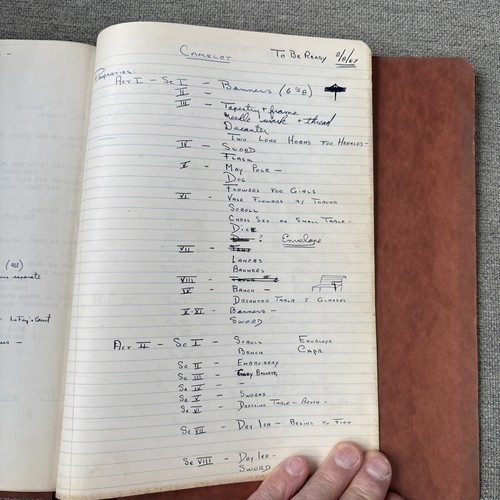 (all)
separate
Le Fay's Court
CAMELOT TO BE READY 8/8/67
PROPERTIES:
ACT I - SC I - BANNERS (6
II -
III - Tapestry & frame
Needle work & thread
Decanter
TWO LONG HORNS FOR HERALDS -
IV - SWORD
FLASK
V - MAY POLE -
DOG
FLOWERS FOR GIRLS
VI - VASE FLOWERS BY THRONE
SCROLL
CHESS SET ON SMALL TABLE -
DICE
? Envelope
VII -
LANCES
BANNERS
VIII -
IX - BENCH -
DECANTER TABLE & GLASSES
X-XI - BANNERS -
SWORD
ACT II - SC I - SCROLL ENVELOPE
BENCH CAPE
SC II - EMBROIDERY
SC III - BASKET,
SC IV - -
SC V - SWORDS
SC VI - DRESSING TABLE -
SC VII - DRY ICE - BEGINS TO FLOW
SC VIII - DRY ICE -
SWORD